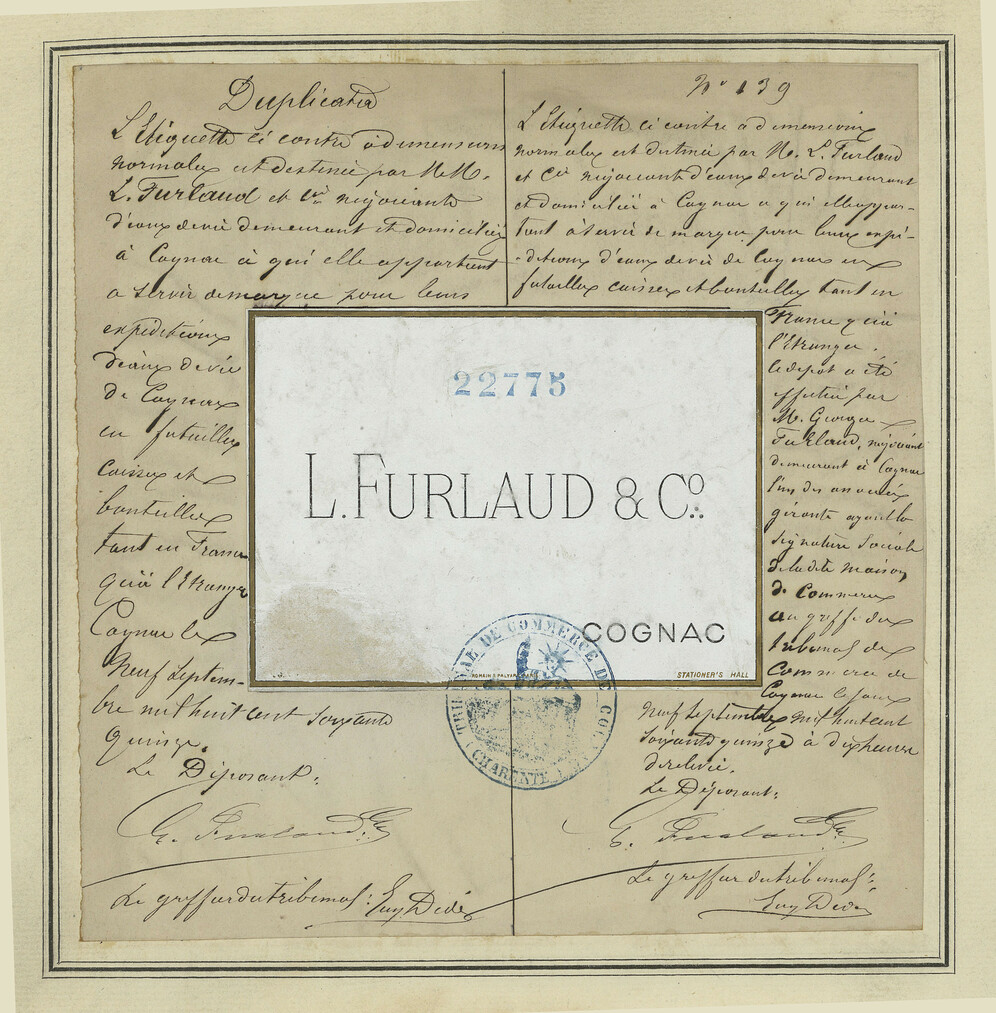 Duplicata
L'Etiquette ci contre à dimensions
normales est destinée par M.M.
L. Furlaud et Cie négociants
d'eaux de vie demeurant et domiciliés
à Cognac à qui elle appartient
a servir de marque pour leurs
expéditions
d'eaux de vie
de Cognac
en futailles
caisses et
bouteilles
tant en France
qu'à l'Etranger
Cognac le
Neuf Septem-
bre mil huit cent soixante
quinze.
Le Déposant:
G. Furlaud
Le greffier du tribunal: Guy Dedé
No 139
L'Etiquette ci contre à dimensions
normales est destinée par M. L. Furlaud
et Cie négociants d'eaux de vie demeurant
et domiciliés à Cognac a qui elle appar-
tient à servir de marque pour leurs expé-
ditions d'eaux de vie de Cognac en
futailles caisses et bouteilles tant en
France qu'à
l'Etranger.
le dépot a été
effectué par
M. George
Furlaud, négociant
demeurant à Cognac
l'un des associés
gérants ayant la
signature sociale
de la dite maison
de Commerce
au greffe du
tribunal de
Commerce de
Cognac le jour
neuf septembre mil huit cent
soixante quinze à dix heures
de relevée.
Le Déposant:
G. Furlaud
Le greffier du tribunal:
Guy Dedé
22775
L. FURLAUD & Co.
COGNAC
ROMAIN & PALYART
STATIONER'S HALL
TRIBUNAL DE COMMERCE DE COGNAC
(CHARENTE)